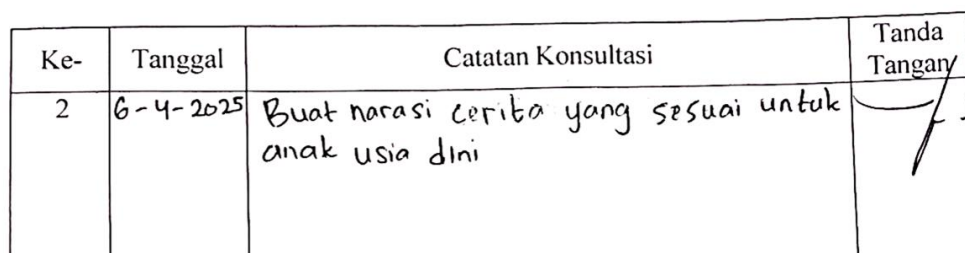 Ke- Tanggal Catatan Konsultasi Tanda
Tangan
2 6-4-2025 Buat narasi cerita yang sesuai untuk
anak usia dini